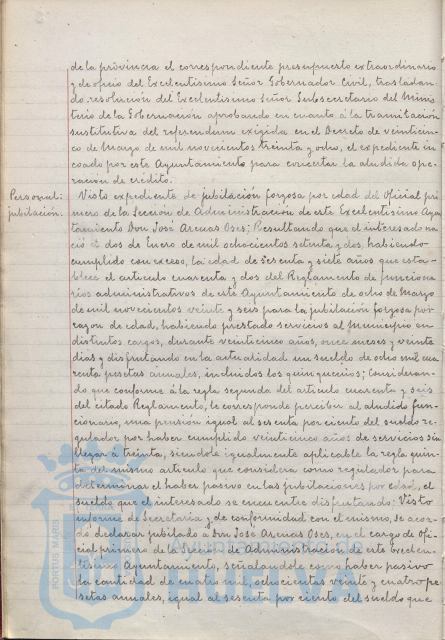 de la provincia el correspondiente presupuesto extraordinario
y de oficio del Excelentísimo Señor Gobernador Civil, trasladan-
do resolución del Excelentísimo Señor Subsecretario del Minis-
terio de la Gobernación aprobando en cuanto á la tramitación
sustitutiva del referendum exigida en el Decreto de veinticin-
co de Marzo de mil novecientos treinta y ocho, el expediente in-
coado por este Ayuntamiento para concertar la aludida ope-
ración de crédito.
Personal:
jubilación.
Visto expediente de jubilación forzosa por edad del Oficial pri-
mero de la Sección de Administración de este Excelentísimo Ayun-
tamiento Don José Arenas Oses; Resultando que el interesado na-
ció el dos de Enero de mil ochocientos setenta y dos, habiendo
cumplido con exceso, la edad de sesenta y siete años que esta-
blece el artículo cuarenta y dos del Reglamento de funciona-
rios administrativos de este Ayuntamiento de ocho de Marzo
de mil novecientos veinte y seis para la jubilación forzosa por
razon de edad, habiendo prestado servicios al Municipio en
distintos cargos, durante veinticinco años, once meses y veinte
dias y disfrutando en la actualidad un sueldo de ocho mil cua-
renta pesetas anuales, incluidos los quinquenios; Consideran-
do que conforme á la regla segunda del artículo cuarenta y seis
del citado Reglamento, le corresponde percibir al aludido fun-
cionario, una pensión igual al sesenta por ciento del sueldo re-
gulador por haber cumplido veinticinco años de servicios sin
llegar á treinta, siendole igualmente aplicable la regla quin-
ta del mismo artículo que considera como regulador para
determinar el haber pasivo en las jubilaciones por edad, el
sueldo que el interesado se encuentre disfrutando; Visto
informe de Secretaría y de conformidad con el mismo, se acor-
dó declarar jubilado a Don José Arenas Oses, en el cargo de Ofi-
cial primero de la Sección de Administración de este Excelen-
tísimo Ayuntamiento, señalandole como haber pasivo
la cantidad de cuatro mil, ochocientas veinte y cuatro pe-
setas anuales, igual al sesenta por ciento del sueldo que
PORTUS MAGNUS